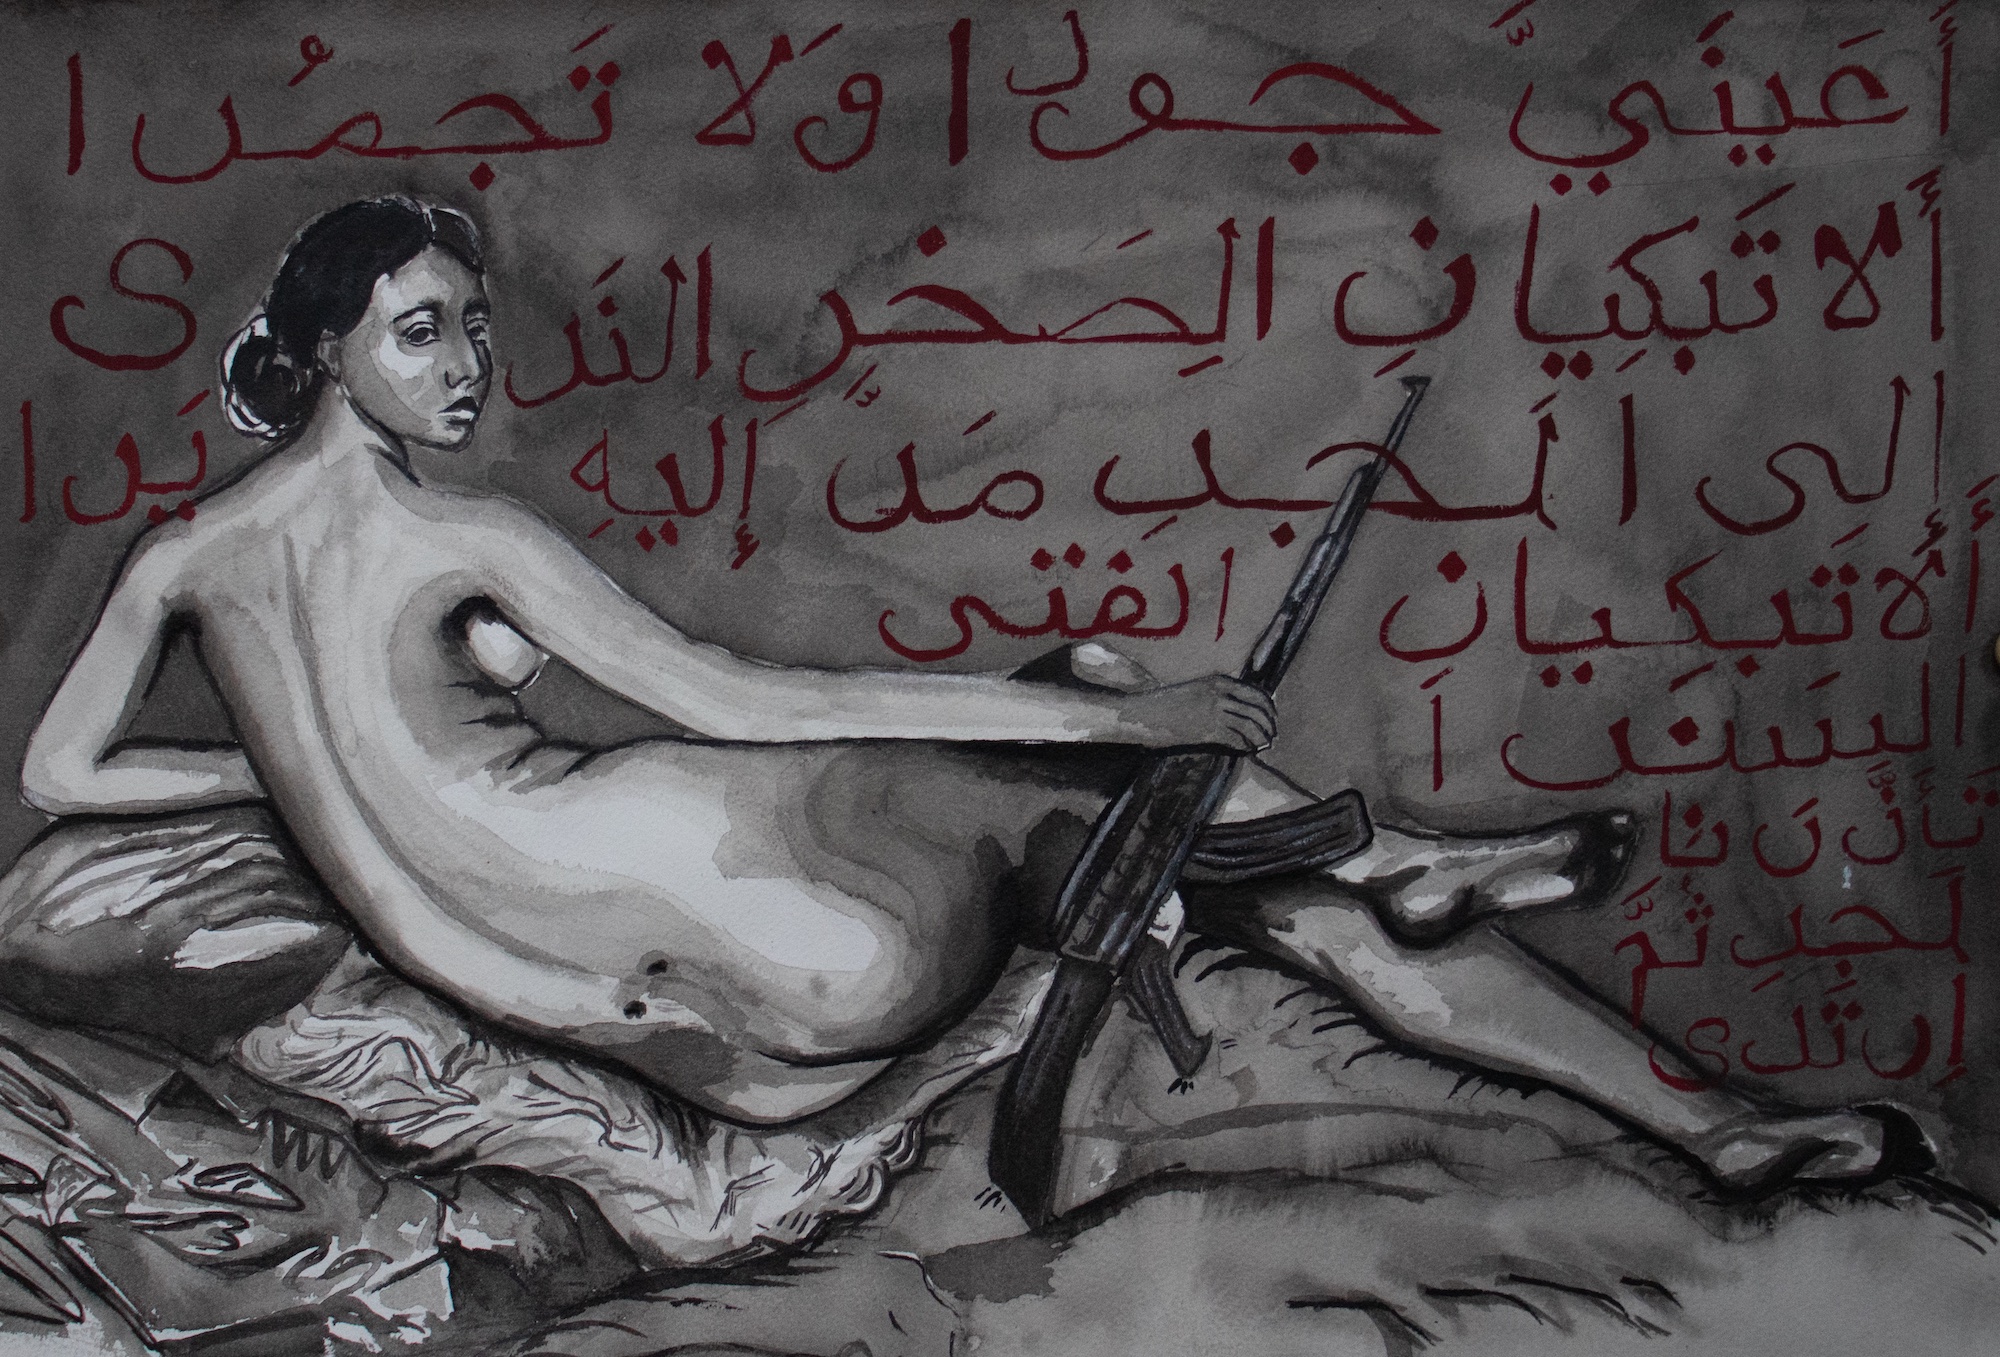 أَعَينَيَّ جودا وَلا تَجمُدا
أَلا تَبكِيانِ الِصَخرِ النَدى
الى المَجدِ مَدَّ إِليهِ يَدا
أَلا تَبكِيانِ الفَتى
لَمجدِ ثمَّ
اِرتَدى